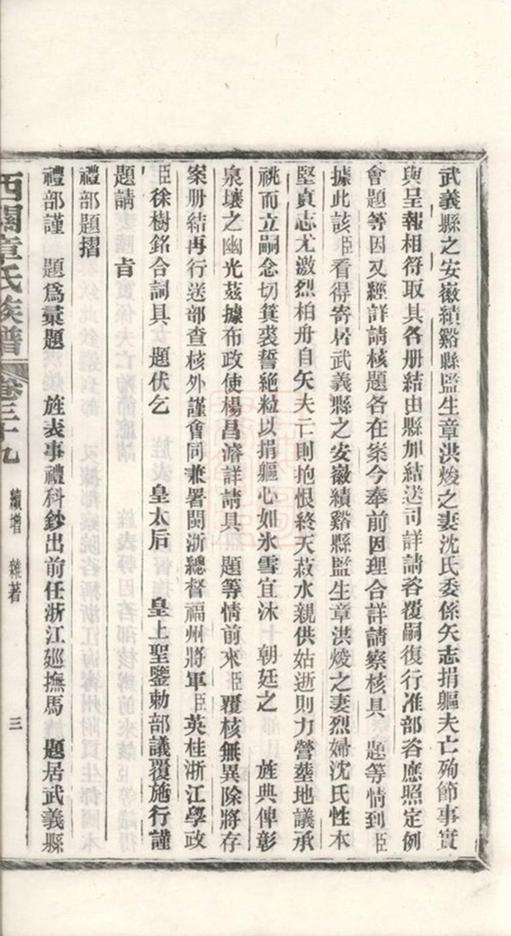 武義縣之安徽績谿縣監生章洪焌之妻沈氏委係矢志捐軀夫亡殉節事實
與呈報相符取具各册結由縣加結送司詳請咨覆嗣復行准部咨應照定例
會題等因又經詳請核題各在案今奉前因理合詳請察核具 題等情到臣
據此該臣看得寄居武義縣之安徽績谿縣監生章洪焌之妻烈婦沈氏性本
堅貞志尤激烈柏舟自矢夫亡則抱恨終天菽水親供姑逝則力營塟地議承
祧而立嗣念切箕裘誓絶粒以捐軀心如氷雪宜沐 朝廷之 旌典俾彰
泉壤之幽光茲據布政使楊昌濬詳請具 題等情前來臣覆核無異除將存
案册結再行送部查核外謹會同兼署閩浙總督福州將軍臣英桂浙江學政
臣徐樹銘合詞具 題伏乞 皇太后 皇上聖鑒勅部議覆施行謹
題請 旨
禮部題摺
禮部謹 題爲彙題 旌表事禮科鈔出前任浙江廵撫馬 題居武義縣
西關章氏族譜 卷三十九 續增 雜著 三